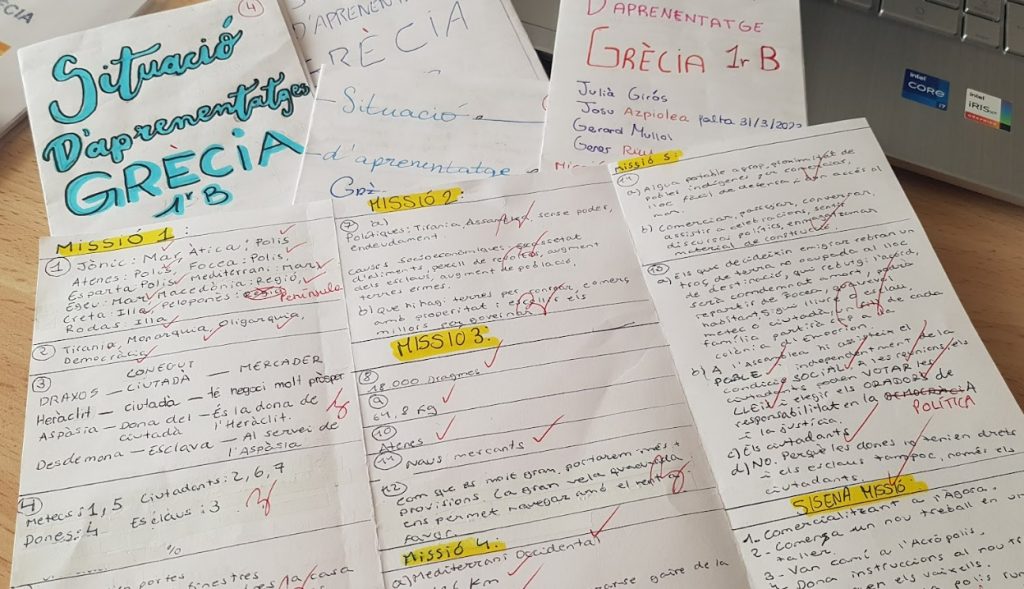 4
Situació
D'aprenentatges
GRÈCIA
1r B
D'APRENENTATGE
GRÈCIA
Situació
d'aprenentatge
D'APRENENTATGE
GRÈCIA 1r B
Julià Girós
Josu Azpiolea falta 31/3/2022
Gerard Mullol
intel
CORE
i7
intel
iRIS
MISSIÓ 1:
1 Jònic: Mar, Àtica: Polis
Atenes: Polis, Focea: Polis,
Esparta: Polis, Mediterrani: Mar,
Egeu: Mar, Macedònia: Regió,
Creta: Illa, Peloponès: Península
Rodas: Illa
2 Tirania, Monarquia, Oligarquia,
Democràcia
3 CONEGUT
DRAXOS — CIUTADÀ — MERCADER
Heràclit — ciutadà — té negoci molt pròsper
Aspàsia — Dona del — És la dona de
ciutadà l'Heràclit.
Desdemona — Esclava — Al servei de
l'Aspàsia
4
Metecs: 1, 5 Ciutadants: 2, 6, 7
Dones: 4 Esclaus: 3
%
portes finestres
MISSIÓ 2:
7
Polítiques: Tirania, Assamblea, sense poder,
endeudament.
causes socioeconòmiques: escassetat
d'aliments, perill de revoltes, augment
dels esclaus, augment de població,
terres ermes.
b) que hi hagi terres per conrear, comerç
amb properitat i escollir els
millors per governar
MISSIÓ 3:
8
18 000 Dragmes
9
64,8 Kg
10
Atenes
11 Naus mercants
12
Com que és molt gran, portarem més
provisions. La gran vela quadrada
ens permet navegar amb el vent a
favor.
Missió 4:
a) Mediterrani Occidental
km
gaire de la
MISSIÓ 5:
a) Aigua potable aprop, proximitat de
poblat indígena per comerciar,
lloc fàcil de defensa i bon accés al
mar.
b) Comerciar, passejar, conversar,
assistir a celebracions, sentir
discursos polítics, enmagatzemar
material de construcció.
a) Els que decideixin emigrar rebran un
troç de terra no ocupada al lloc
de destinació, qui rebutgi l'avís,
serà condemnat a mort, para
habitants
família partirà cap a la
colònia d'Emporion
b) A l'Assamblea hi assisteix el
POBLE independentment de la
condició SOCIAL. A les reunions, els
ciutadants poden VOTAR les
LLEIS i elegir els ORADORS de
responsabilitat en la POLÍTICA
i la justícia.
c) Els ciutadants
d) NO. Perquè les dones no tenien drets
i els esclaus tampoc, només els
ciutadants.
SISENA MISSIÓ:
1- Comercialitzant a l'Àgora.
2- Comença un nou treball en un
taller.
3- Van camí a l'Acròpolis.
4- Dona instruccions al nou
en els vaixells.